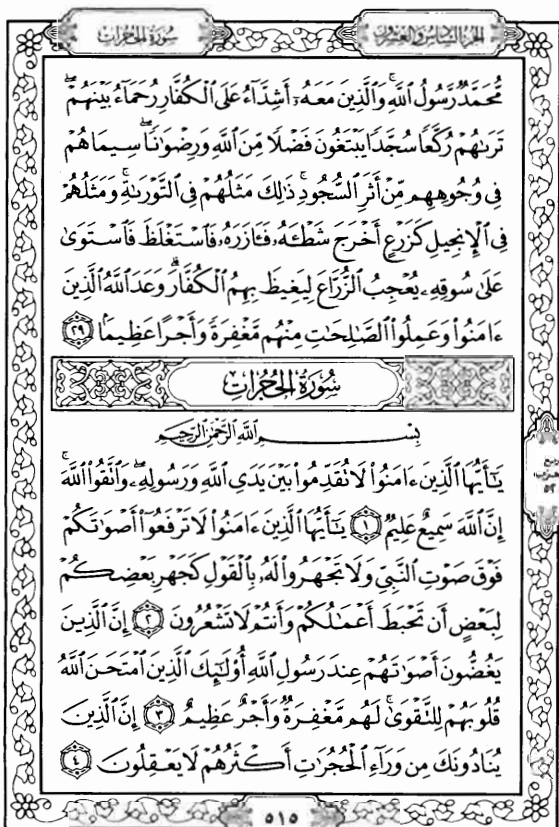 الجزء السادس والعشرون
سورة الحجرات
مُّحَمَّدٌ رَّسُولُ ٱللَّهِۚ وَٱلَّذِينَ مَعَهُۥٓ أَشِدَّآءُ عَلَى ٱلۡكُفَّارِ رُحَمَآءُ بَيۡنَهُمۡۖ
تَرَىٰهُمۡ رُكَّعٗا سُجَّدٗا يَبۡتَغُونَ فَضۡلٗا مِّنَ ٱللَّهِ وَرِضۡوَٰنٗاۖ سِيمَاهُمۡ
فِي وُجُوهِهِم مِّنۡ أَثَرِ ٱلسُّجُودِۚ ذَٰلِكَ مَثَلُهُمۡ فِي ٱلتَّوۡرَىٰةِۚ وَمَثَلُهُمۡ
فِي ٱلۡإِنجِيلِ كَزَرۡعٍ أَخۡرَجَ شَطۡـَٔهُۥ فَـَٔازَرَهُۥ فَٱسۡتَغۡلَظَ فَٱسۡتَوَىٰ
عَلَىٰ سُوقِهِۦ يُعۡجِبُ ٱلزُّرَّاعَ لِيَغِيظَ بِهِمُ ٱلۡكُفَّارَۗ وَعَدَ ٱللَّهُ ٱلَّذِينَ
ءَامَنُواْ وَعَمِلُواْ ٱلصَّٰلِحَٰتِ مِنۡهُم مَّغۡفِرَةٗ وَأَجۡرًا عَظِيمَۢا ٢٩
سُورَةُ الحُجُرَات
بِسۡمِ ٱللَّهِ ٱلرَّحۡمَٰنِ ٱلرَّحِيمِ
يَٰٓأَيُّهَا ٱلَّذِينَ ءَامَنُواْ لَا تُقَدِّمُواْ بَيۡنَ يَدَيِ ٱللَّهِ وَرَسُولِهِۦۖ وَٱتَّقُواْ ٱللَّهَۚ
إِنَّ ٱللَّهَ سَمِيعٌ عَلِيمٞ ١ يَٰٓأَيُّهَا ٱلَّذِينَ ءَامَنُواْ لَا تَرۡفَعُوٓاْ أَصۡوَٰتَكُمۡ
فَوۡقَ صَوۡتِ ٱلنَّبِيِّ وَلَا تَجۡهَرُواْ لَهُۥ بِٱلۡقَوۡلِ كَجَهۡرِ بَعۡضِكُمۡ
لِبَعۡضٍ أَن تَحۡبَطَ أَعۡمَٰلُكُمۡ وَأَنتُمۡ لَا تَشۡعُرُونَ ٢ إِنَّ ٱلَّذِينَ
يَغُضُّونَ أَصۡوَٰتَهُمۡ عِندَ رَسُولِ ٱللَّهِ أُوْلَٰٓئِكَ ٱلَّذِينَ ٱمۡتَحَنَ ٱللَّهُ
قُلُوبَهُمۡ لِلتَّقۡوَىٰۚ لَهُم مَّغۡفِرَةٞ وَأَجۡرٌ عَظِيمٌ ٣ إِنَّ ٱلَّذِينَ
يُنَادُونَكَ مِن وَرَآءِ ٱلۡحُجُرَٰتِ أَكۡثَرُهُمۡ لَا يَعۡقِلُونَ ٤
٥١٥